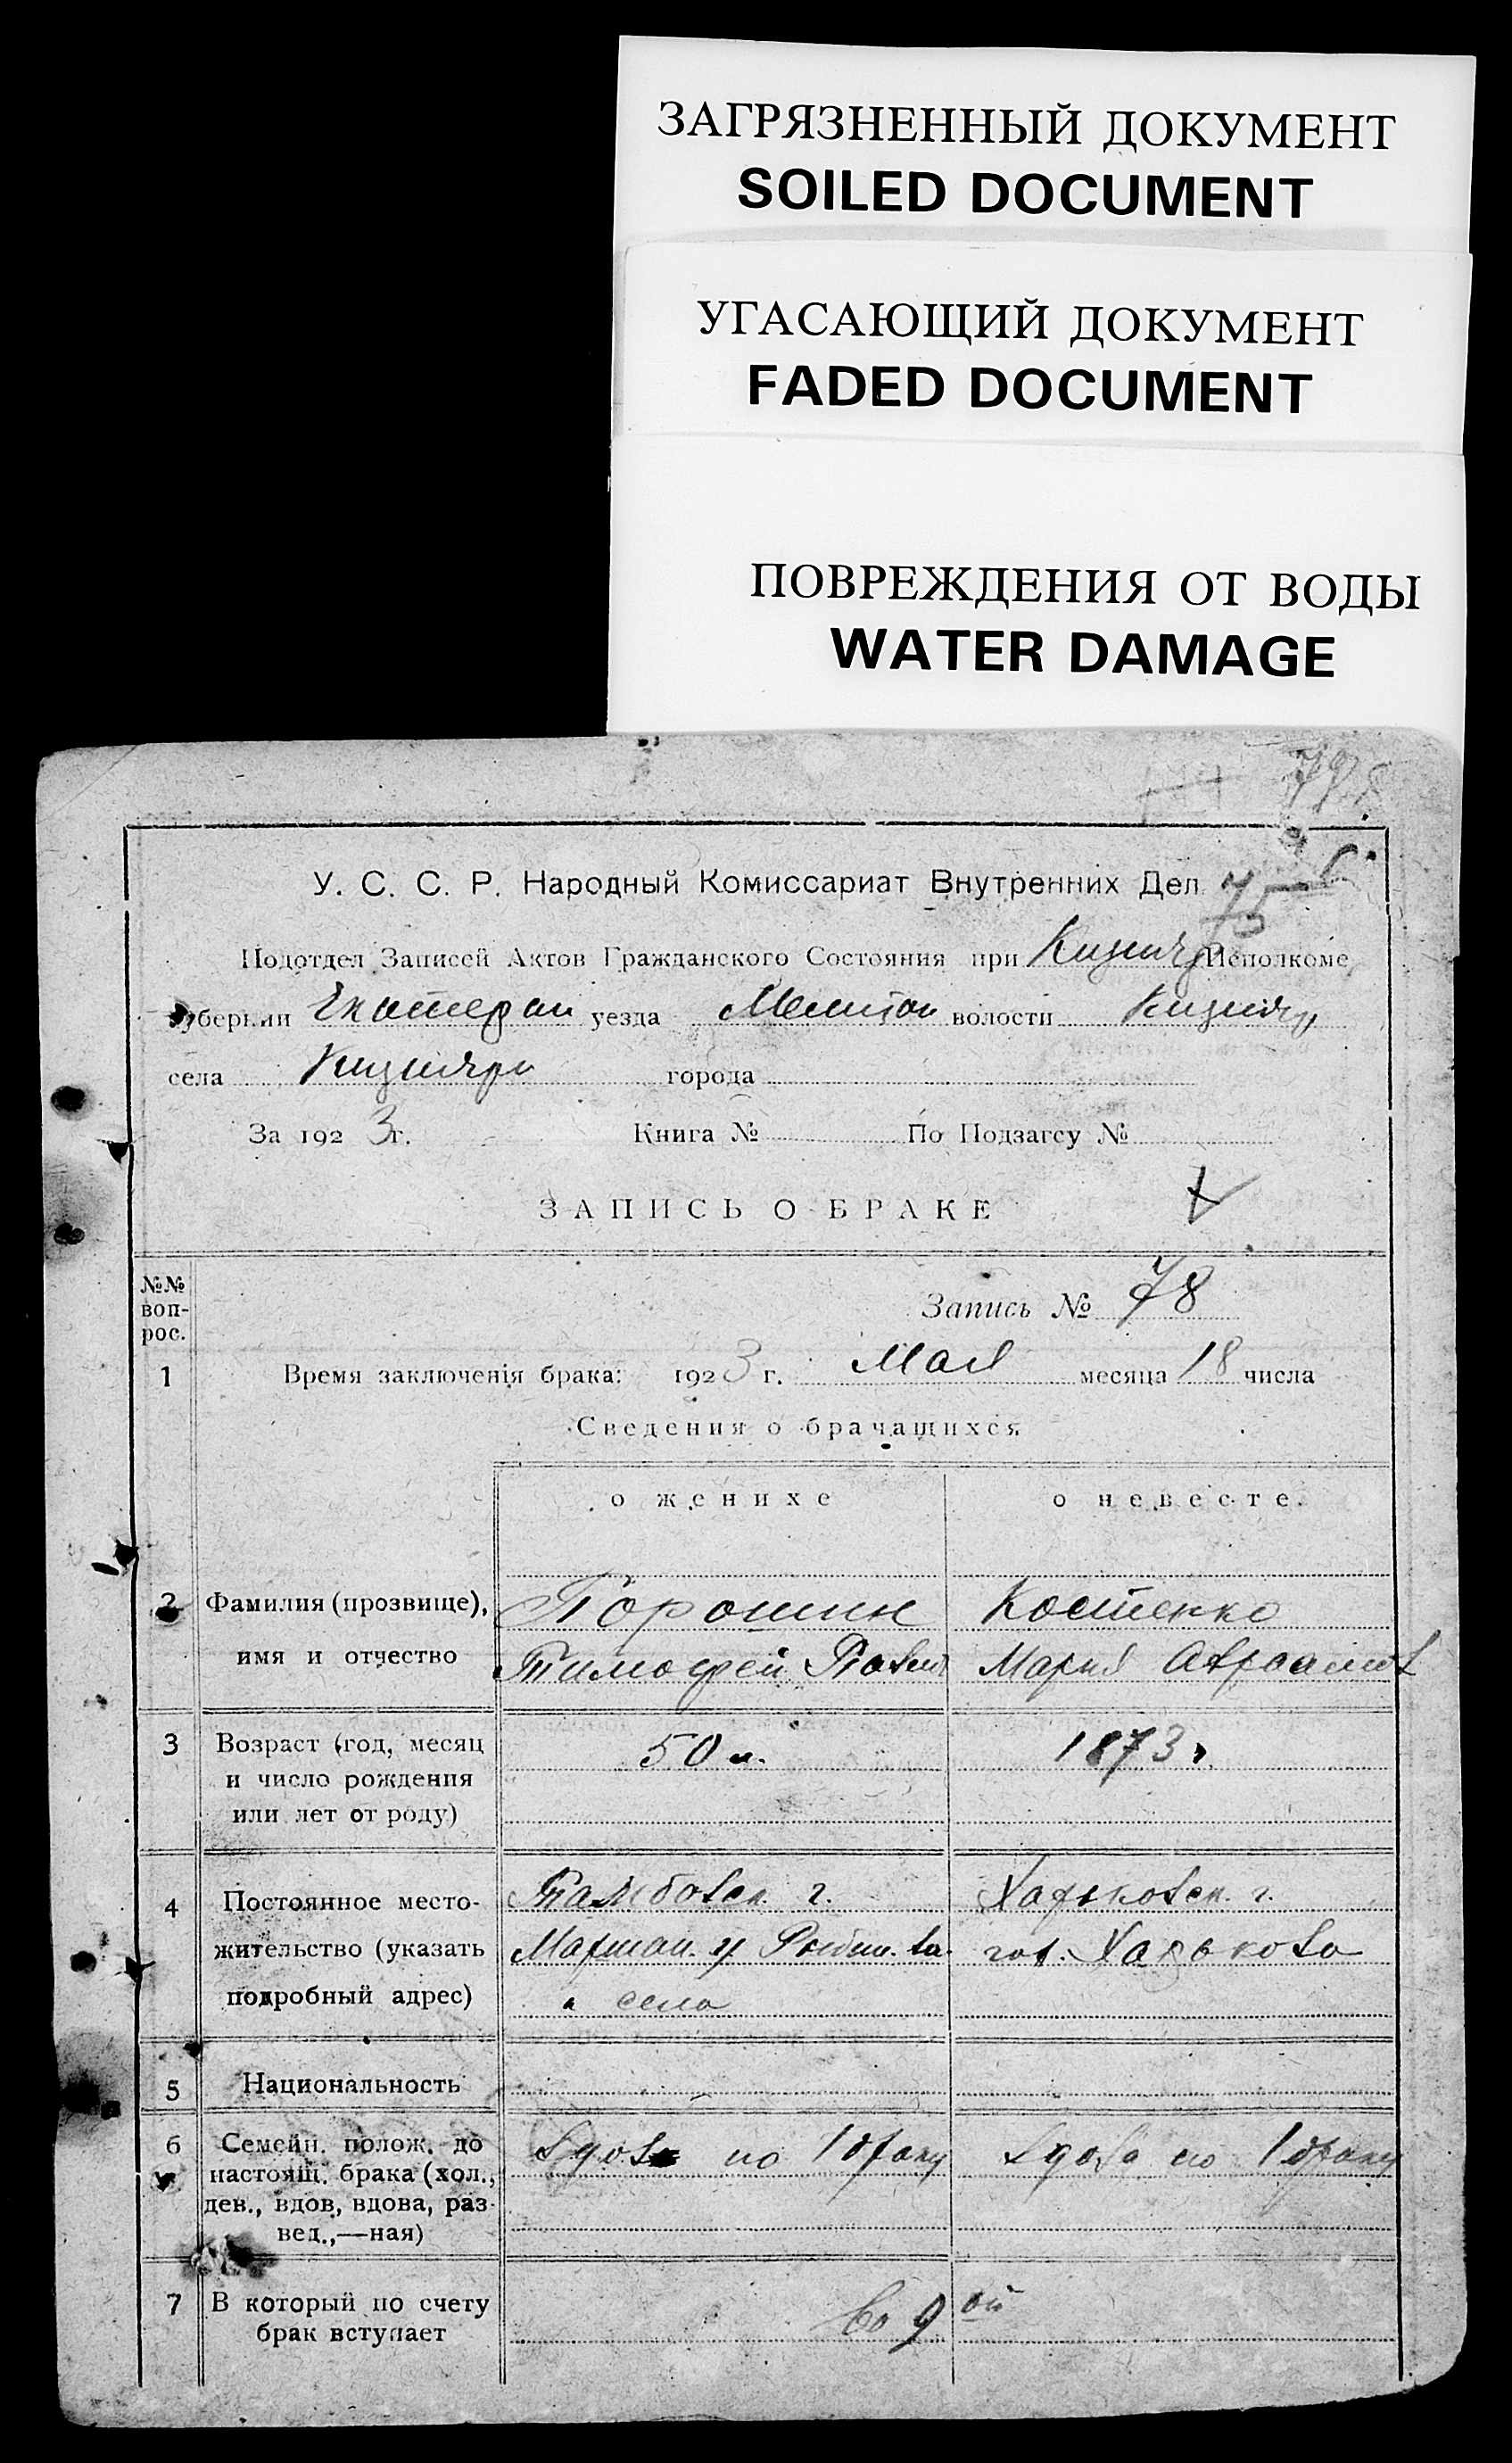 ЗАГРЯЗНЕННЫЙ ДОКУМЕНТ
SOILED DOCUMENT
УГАСАЮЩИЙ ДОКУМЕНТ
FADED DOCUMENT
ПОВРЕЖДЕНИЯ ОТ ВОДЫ
WATER DAMAGE
У. С. С. Р. Народный Комиссариат Внутренних Дел
75
Подотдел Записей Актов Гражданского Состояния при Кизияр Исполкоме
губернии Екатерин уезда Мелитоп волости Кизияр
села Кизияри города
За 1923 г. Книга № По Подзагсу №
ЗАПИСЬ О БРАКЕ
№№ вопрос.
Запись № 78
1 Время заключенiя брака: 1923 г. Мая месяца 18 числа
Сведения о брачащихся
о женихе о невесте
2 Фамилия (прозвище), Порошин Костенко
имя и отчество Тимофей Павлов Мария Авраамов
3 Возраст (год, месяц 50 л. 1873
и число рождения
или лет от роду)
4 Постоянное место- Тамбовск. г. Харьковск. г.
жительство (указать Маршан. у гор. Харькова
подробный адрес) села
5 Национальность
6 Семейн. полож. до вдов по 1 браку вдова по 1 браку
настоящ. брака (хол.,
дев., вдов, вдова, раз-
вед.,—ная)
7 В который по счету
брак вступает